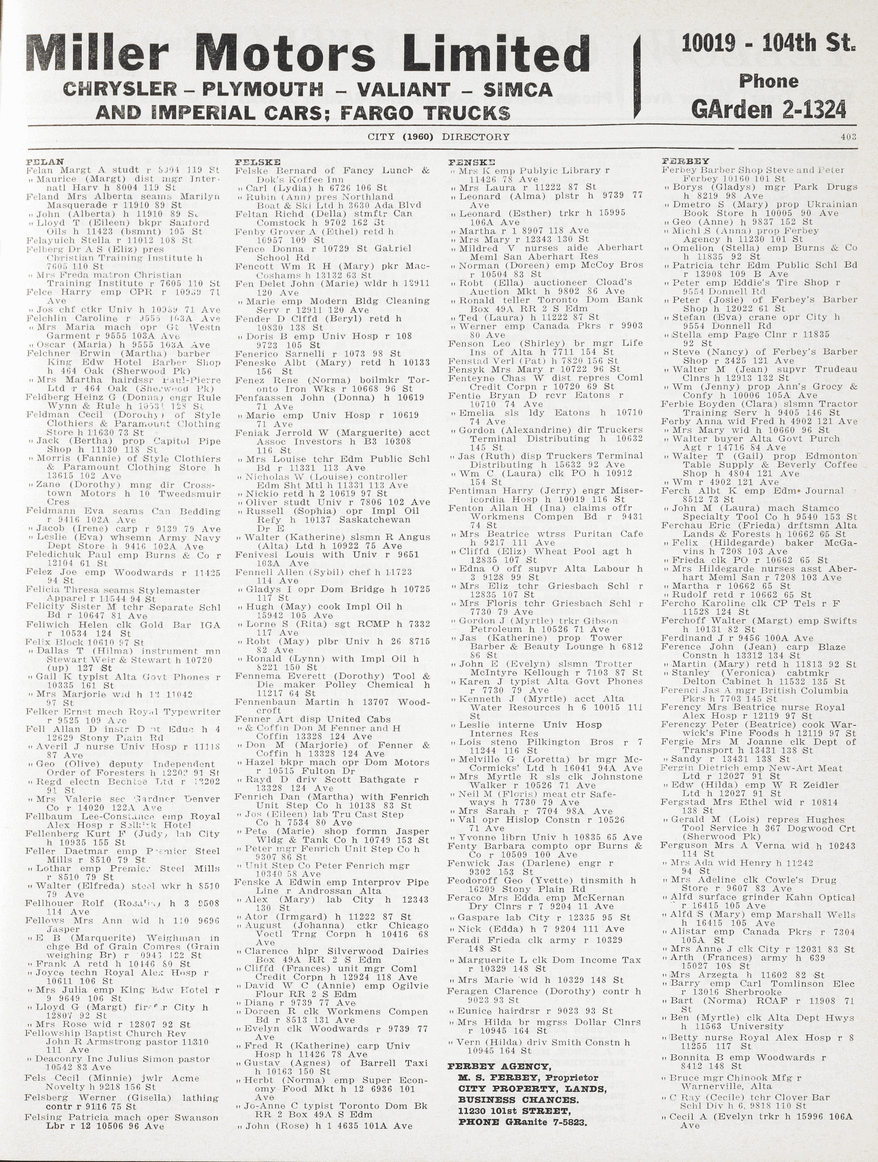 Miller Motors Limited
CHRYSLER – PLYMOUTH – VALIANT – SIMCA
AND IMPERIAL CARS; FARGO TRUCKS
10019 - 104th St.
Phone
GArden 2-1324
CITY (1960) DIRECTORY
403
FELAN
Felan Margt A studt r 119 St
„ Maurice (Margt) dist mgr Inter-
natl Harv h 8004 119 St
Feland Mrs Alberta seams Marilyn
Masquerade r 11910 89 St
„ John (Alberta) h 11910 89 St
„ Lloyd T (Eileen) bkpr Sanford
Oils h 11423 (bsmnt) 105 St
Felayuich Stella r 11012 108 St
Felberg Dr A S (Eliz) pres
Christian Training Institute h
7605 110 St
„ Mrs Freda matron Christian
Training Institute r 7605 110 St
Felce Harry emp CPR r 10959 71
Ave
„ Jos chf ctkr Univ h 10959 71 Ave
Felchlin Caroline r 9555 103A Ave
„ Mrs Maria mach opr Gt Westn
Garment r 9555 103A Ave
„ Oscar (Maria) h 9555 103A Ave
Felchner Erwin (Martha) barber
King Edw Hotel Barber Shop
h 464 Oak (Sherwood Pk)
„ Mrs Martha hairdssr Paul-Pierre
Ltd r 464 Oak (Sherwood Pk)
Feldberg Heinz G (Donna) engr Rule
Wynn & Rule h 128 St
Feldman Cecil (Dorothy) of Style
Clothiers & Paramount Clothing
Store h 11630 73 St
„ Jack (Bertha) prop Capitol Pipe
Shop h 11130 118 St
„ Morris (Fannie) of Style Clothiers
& Paramount Clothing Store h
13615 102 Ave
„ Zano (Dorothy) mng dir Cross-
town Motors h 10 Tweedsmuir
Cres
Feldmann Eva seams Can Bedding
r 9416 102A Ave
„ Jacob (Irene) carp r 9139 79 Ave
„ Leslie (Eva) whsemn Army Navy
Dept Store h 9416 102A Ave
Feledichuk Paul emp Burns & Co r
12104 61 St
Felez Joe emp Woodwards r 11425
94 St
Felicia Thresa seams Stylemaster
Apparel r 11544 94 St
Felicity Sister M tchr Separate Schl
Bd r 10647 81 Ave
Feliwich Helen clk Gold Bar IGA
r 10534 124 St
Felix Block 10610 97 St
„ Dallas T (Hilma) instrument mn
Stewart Weir & Stewart h 10720
(up) 127 St
„ Gail K typist Alta Govt Phones r
10335 161 St
„ Mrs Marjorie wid h 12 11042
97 St
Felker Ernst mech Royal Typewriter
r 9525 109 Ave
Fell Allan D instr D ot Educ h 4
12629 Stony Plain Rd
„ Averil J nurse Univ Hosp r 11118
87 Ave
„ Geo (Olive) deputy Independent
Order of Foresters h 12202 91 St
„ Regd electn Bechtee Ltd r 12202
91 St
„ Mrs Valerie sec Gardner Denver
Co r 14020 122A Ave
Fellbaum Lee-Constance emp Royal
Alex Hosp r Selkirk Hotel
Fellenberg Kurt F (Judy) lab City
h 10935 155 St
Feller Daetmar emp Premier Steel
Mills r 8510 79 St
„ Lothar emp Premier Steel Mills
r 8510 79 St
„ Walter (Elfreda) steel wkr h 8510
79 Ave
Fellhouer Rolf h 3 9508
114 Ave
Fellows Mrs Ann wid h 110 9696
Jasper
„ E B (Marquerite) Weighman in
chge Bd of Grain Comres (Grain
weighing Br) r 122 St
„ Frank A retd h 10446 80 St
„ Joyce techn Royal Alex Hosp r
10611 106 St
„ Mrs Julia emp King Edw Hotel r
9 9649 106 St
„ Lloyd G (Margt) r City h
12807 92 St
„ Mrs Rose wid r 12807 92 St
Fellowship Baptist Church Rev
John R Armstrong pastor 11310
111 Ave
„ Deaconry Inc Julius Simon pastor
10542 83 Ave
Fels Cecil (Minnie) jwlr Acme
Novelty h 9218 156 St
Felsberg Werner (Gisella) lathing
contr r 9116 75 St
Felsing Patricia mach oper Swanson
Lbr r 12 10506 96 Ave
FELSKE
Felske Bernard of Fancy Lunch &
Dok's Koffee Inn
„ Carl (Lydia) h 6726 106 St
„ Rubin (Ann) pres Northland
Boat & Ski Ltd h 3630 Ada Blvd
Feltian Richd (Della) stmftr Can
Comstock h 9702 162 St
Fenby Grover A (Ethel) retd h
10957 109 St
Fence Donna r 10729 St Gatriel
School Rd
Fencott Wm R H (Mary) pkr Mac-
Coshams h 13132 63 St
Fen Delet John (Marie) wldr h 12911
120 Ave
„ Marie emp Modern Bldg Cleaning
Serv r 12911 120 Ave
Fender D Clifd (Beryl) retd h
10830 138 St
„ Doris B emp Univ Hosp r 108
9723 105 St
Fenerico Sarnelli r 1073 98 St
Feneske Albt (Mary) retd h 10133
156 St
Fenez Rene (Norma) boilmkr Tor-
onto Iron Wks r 10668 96 St
Fenfaassen John (Donna) h 10619
71 Ave
„ Marie emp Univ Hosp r 10619
71 Ave
Feniak Jerrold W (Marguerite) acct
Assoc Investors h B3 10308
116 St
„ Mrs Louise tchr Edm Public Schl
Bd r 11331 113 Ave
„ Nicholas W (Louise) controller
Edm Sht Mtl h 11331 113 Ave
„ Nickio retd h 2 10619 97 St
„ Oliver studt Univ r 7806 102 Ave
„ Russell (Sophia) opr Impl Oil
Refy h 10137 Saskatchewan
Dr E
„ Walter (Katherine) slsmn R Angus
(Alta) Ltd h 10922 75 Ave
Fenivesi Louis with Univ r 9651
103A Ave
Fennell Allen (Sybil) chef h 11723
114 Ave
„ Gladys I opr Dom Bridge h 10725
117 St
„ Hugh (May) cook Impl Oil h
15942 105 Ave
„ Lorne S (Rita) sgt RCMP h 7332
117 Ave
„ Robt (May) plbr Univ h 26 8715
82 Ave
„ Ronald (Lynn) with Impl Oil h
8221 150 St
Fennema Everett (Dorothy) Tool &
Die maker Polley Chemical h
11217 64 St
Fennenbaun Martin h 13707 Wood-
croft
Fenner Art disp United Cabs
„ & Coffin Don M Fenner and H
Coffin 13328 124 Ave
„ Don M (Marjorie) of Fenner &
Coffin h 13328 124 Ave
„ Hazel bkpr mach opr Dom Motors
r 10515 Fulton Dr
„ Rayd D driv Scott Bathgate r
13328 124 Ave
Fenrich Dan (Martha) with Fenrich
Unit Step Co h 10138 83 St
„ Jos (Eileen) lab Tru Cast Step
Co h 7534 80 Ave
„ Pete (Marie) shop formn Jasper
Wldg & Tank Co h 10749 153 St
„ Peter mgr Fenrich Unit Step Co h
9307 86 St
„ Unit Step Co Peter Fenrich mgr
10340 58 Ave
Fenske A Edwin emp Interprov Pipe
Line r Androssan Alta
„ Alex (Mary) lab City h 12343
130 St
„ Ator (Irmgard) h 11222 87 St
„ August (Johanna) ctkr Chicago
Voctl Trng Corpn h 10416 68
Ave
„ Clarence hlpr Silverwood Dairies
Box 49A RR 2 S Edm
„ Cliffd (Frances) unit mgr Coml
Credit Corpn h 12924 118 Ave
„ David W C (Annie) emp Ogilvie
Flour RR 2 S Edm
„ Diane r 9739 77 Ave
„ Doreen R clk Workmens Compen
Bd r 8513 131 Ave
„ Evelyn clk Woodwards r 9739 77
Ave
„ Fred R (Katherine) carp Univ
Hosp h 11426 78 Ave
„ Gustav (Agnes) of Barrell Taxi
h 10163 150 St
„ Herbt (Norma) emp Super Econ-
omy Food Mkt h 12 6936 101
Ave
„ Jo-Anne C typist Toronto Dom Bk
RR 2 Box 49A S Edm
„ John (Rose) h 1 4635 101A Ave
FENSKE
„ Mrs K emp Publyic Library r
11426 78 Ave
„ Mrs Laura r 11222 87 St
„ Leonard (Alma) plstr h 9739 77
Ave
„ Leonard (Esther) trkr h 15995
106A Ave
„ Martha r 1 8907 118 Ave
„ Mrs Mary r 12343 130 St
„ Mildred V nurses aide Aberhart
Meml San Aberhart Res
„ Norman (Doreen) emp McCoy Bros
r 10504 83 St
„ Robt (Ella) auctioneer Cload's
Auction Mkt h 9802 86 Ave
„ Ronald teller Toronto Dom Bank
Box 49A RR 2 S Edm
„ Ted (Laura) h 11222 87 St
„ Werner emp Canada Pkrs r 9903
80 Ave
Fenson Leo (Shirley) br mgr Life
Ins of Alta h 7711 154 St
Fenstad Verl (Pat) h 7820 156 St
Fensyk Mrs Mary r 10722 96 St
Fenteyne Chas W dist repres Coml
Credit Corpn r 10729 69 St
Fentie Bryan D rcvr Eatons r
10710 74 Ave
„ Emelia sls ldy Eatons h 10710
74 Ave
„ Gordon (Alexandrine) dir Truckers
Terminal Distributing h 10632
145 St
„ Jas (Ruth) disp Truckers Terminal
Distributing h 15632 92 Ave
„ Wm C (Laura) clk PO h 10912
154 St
Fentiman Harry (Jerry) engr Miser-
icordia Hosp h 10019 116 St
Fenton Allan H (Ina) claims offr
Workmens Compen Bd r 9431
74 St
„ Mrs Beatrice wtrss Puritan Cafe
h 9217 111 Ave
„ Cliffd (Eliz) Wheat Pool agt h
12835 107 St
„ Edna O off supvr Alta Labour h
3 9128 99 St
„ Mrs Eliz tchr Griesbach Schl r
12835 107 St
„ Mrs Floris tchr Griesbach Schl r
7730 79 Ave
„ Gordon J (Myrtle) trkr Gibson
Petroleum h 10526 71 Ave
„ Jas (Katherine) prop Tower
Barber & Beauty Lounge h 6812
86 St
„ John E (Evelyn) slsmn Trotter
McIntyre Kellough r 7103 87 St
„ Karen J typist Alta Govt Phones
r 7730 79 Ave
„ Kenneth J (Myrtle) acct Alta
Water Resources h 6 10015 111
St
„ Leslie interne Univ Hosp
Internes Res
„ Lois steno Pilkington Bros r 7
11244 116 St
„ Melville G (Loretta) br mgr Mc-
Cormicks' Ltd h 16041 94A Ave
„ Mrs Myrtle R sls clk Johnstone
Walker r 10526 71 Ave
„ Neil M (Floris) meat ctr Safe-
ways h 7730 79 Ave
„ Mrs Sarah r 7704 98A Ave
„ Val opr Hislop Constn r 10526
71 Ave
„ Yvonne librn Univ h 10835 65 Ave
Fenty Barbara compto opr Burns &
Co r 10509 100 Ave
Fenwick Jas (Darlene) engr r
9302 153 St
Feodoroff Geo (Yvette) tinsmith h
16209 Stony Plain Rd
Feraco Mrs Edda emp McKernan
Dry Clnrs r 7 9204 11 Ave
„ Gaspare lab City r 12335 95 St
„ Nick (Edda) h 7 9204 111 Ave
Feradi Frieda clk army r 10329
148 St
„ Marguerite L clk Dom Income Tax
r 10329 148 St
„ Mrs Marie wid h 10329 148 St
Feragen Clarence (Dorothy) contr h
9023 93 St
„ Eunice hairdrsr r 9023 93 St
„ Mrs Hilda br mgrss Dollar Clnrs
r 10945 164 St
„ Vern (Hilda) driv Smith Constn h
10945 164 St
FERBEY AGENCY,
M. S. FERBEY, Proprietor
CITY PROPERTY, LANDS,
BUSINESS CHANCES.
11230 101st STREET,
PHONE GRanite 7-5823.
FERBEY
Ferbey Barber Shop Steve and Peter
Ferbey 10160 101 St
„ Borys (Gladys) mgr Park Drugs
h 8219 98 Ave
„ Dmetro S (Mary) prop Ukranian
Book Store h 10005 90 Ave
„ Geo (Anne) h 9837 152 St
„ Michl S (Anna) prop Ferbey
Agency h 11230 101 St
„ Omelion (Stella) emp Burns & Co
h 11835 92 St
„ Patricia tchr Edm Public Schl Bd
r 13908 109 B Ave
„ Peter emp Eddie's Tire Shop r
9554 Donnell Rd
„ Peter (Josie) of Ferbey's Barber
Shop h 12022 61 St
„ Stefan (Eva) crane opr City h
9554 Donnell Rd
„ Stella emp Page Clnr r 11835
92 St
„ Steve (Nancy) of Ferbey's Barber
Shop r 3425 121 Ave
„ Walter M (Jean) supvr Trudeau
Clnrs h 12913 132 St
„ Wm (Jenny) prop Ann's Grocy &
Confy h 10006 105A Ave
Ferbie Boyden (Clara) slsmn Tractor
Training Serv h 9405 146 St
Ferby Anna wid Fred h 4902 121 Ave
„ Mrs Mary wid h 10660 96 St
„ Walter buyer Alta Govt Purch
Agt r 14716 84 Ave
„ Walter T (Gail) prop Edmonton
Table Supply & Beverly Coffee
Shop h 4804 121 Ave
„ Wm r 4902 121 Ave
Ferch Albt K emp Edm Journal r
8512 73 St
„ John M (Laura) mach Stamco
Specialty Tool Co h 9540 153 St
Ferchau Eric (Frieda) drftsmn Alta
Lands & Forests h 10662 65 St
„ Felix (Hildegarde) baker McGa-
vins h 7208 103 Ave
„ Frieda clk PO r 10662 65 St
„ Mrs Hildegarde nurses asst Aber-
hart Meml San r 7208 103 Ave
„ Martha r 10662 65 St
„ Rudolf retd r 10662 65 St
Fercho Karoline clk CP Tels r F
11528 124 St
Ferchoff Walter (Margt) emp Swifts
h 10131 82 St
Ferdinand J r 9456 100A Ave
Ference John (Jean) carp Blaze
Constn h 13312 134 St
„ Martin (Mary) retd h 11813 92 St
„ Stanley (Veronica) cabtmkr
Delton Cabinet h 11532 135 St
Ferenci Jas A mgr British Columbia
Pkrs h 7703 145 St
Ferency Mrs Beatrice nurse Royal
Alex Hosp r 12119 97 St
Ferenczy Peter (Beatrice) cook War-
wick's Fine Foods h 12119 97 St
Fergie Mrs M Joanne clk Dept of
Transport h 13431 138 St
„ Sandy r 13431 138 St
Fergin Dietrich emp New-Art Meat
Ltd r 12027 91 St
„ Edw (Hilda) emp W R Zeidler
Ltd h 12027 91 St
Fergstad Mrs Ethel wid r 10814
138 St
„ Gerald M (Lois) repres Hughes
Tool Service h 367 Dogwood Crt
(Sherwood Pk)
Ferguson Mrs A Verna wid h 10243
114 St
„ Mrs Ada wid Henry h 11242
94 St
„ Mrs Adeline clk Cowle's Drug
Store r 9607 83 Ave
„ Alfd surface grinder Kahn Optical
r 16415 105 Ave
„ Alfd S (Mary) emp Marshall Wells
h 16415 105 Ave
„ Alistar emp Canada Pkrs r 7304
105A St
„ Mrs Anne J clk City r 12031 83 St
„ Arth (Frances) army h 639
15027 108 St
„ Mrs Arzegta h 11602 82 St
„ Barry emp Carl Tomlinson Elec
r 13016 Sherbrooke
„ Bart (Norma) RCAF r 11908 71
St
„ Ben (Myrtle) clk Alta Dept Hwys
h 11563 University
„ Betty nurse Royal Alex Hosp r 8
11255 117 St
„ Bonnita B emp Woodwards r
8412 148 St
„ Bruce mgr Chinook Mfg r
Warnerville, Alta
„ C Ray (Cecile) tchr Clover Bar
Schl Div h 6, 9818 110 St
„ Cecil A (Evelyn trkr h 15996 106A
Ave